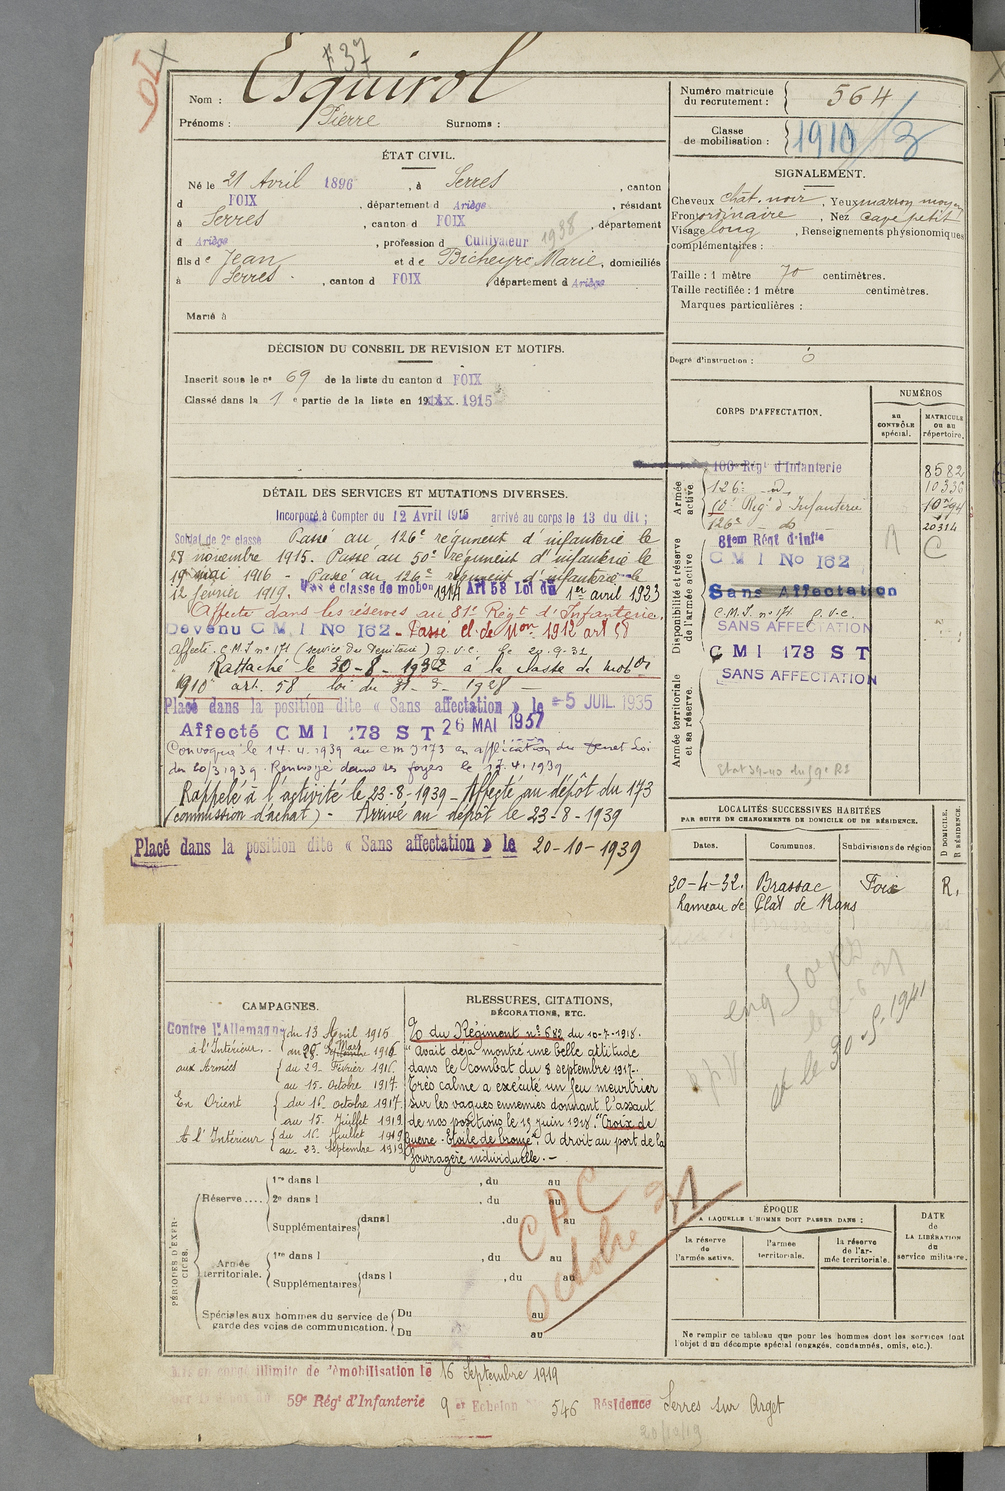 F 37
Nom : Esquirol
Prénoms : Pierre Surnoms :
ÉTAT CIVIL.
Né le 21 Avril 1896, à Serres, canton
d FOIX, département d Ariège, résidant
à Serres, canton d FOIX, département
d Ariège, profession d Cultivateur 1938
fils de Jean et de Bicheyre Marie, domiciliés
à Serres, canton d FOIX département d Ariège
Marié à
DÉCISION DU CONSEIL DE REVISION ET MOTIFS.
Inscrit sous le n° 69 de la liste du canton d FOIX
Classé dans la 1 e partie de la liste en 1915
DÉTAIL DES SERVICES ET MUTATIONS DIVERSES.
Incorporé à Compter du 12 Avril 1915 arrivé au corps le 13 du dit ;
Soldat de 2e classe Passé au 126e régiment d'infanterie le
28 novembre 1915. Passé au 50e régiment d'infanterie le
19 mai 1916 - Passé au 126e régiment d'infanterie le
12 février 1919. Passé classe de mobon 1914 Art 58 Loi du 1er avril 1923
Affecté dans les réserves au 81e Régt d'Infanterie.
Devenu C M I No 162 - Passé cl. de mon 1912 art 58
Affecté C.M.I n° 171 (service du Territoire) g.v.c. le 20.9.32
Rattaché le 30-8-1932 à la classe de mobon
1910 art. 58, loi du 31-3-1928
Placé dans la position dite « Sans affectation » le - 5 JUIL 1935
Affecté C M I 173 S T 26 MAI 1937
Convoqué le 14.4.1939 au C M I 173 en application du Loi
du 20/3 1939. Renvoyé dans ses foyers le 17.4.1939
Rappelé à l'activité le 23-8-1939 - Affecté au dépôt du 173
(commission d'achat) - Arrivé au dépôt le 23-8-1939
Placé dans la position dite « Sans affectation » le 20-10-1939
CAMPAGNES.
Contre l'Allemagne du 13 Avril 1915
à l'Intérieur. au 28 Mars 1916
aux Armées du 29 Février 1916
au 15 Octobre 1917
En Orient du 16 octobre 1917
au 15 Juillet 1919
A l'Intérieur du 16 Juillet 1919
au 23 Septembre 1919
BLESSURES, CITATIONS,
DÉCORATIONS, ETC.
O du Régiment n° 682 du 10-7-1918.
"Avait déjà montré une belle attitude
dans le Combat du 8 septembre 1917.
Très calme a exécuté un feu meurtrier
sur les vagues ennemies donnant l'assaut
de nos positions le 15 juin 1918." Croix de
guerre - Etoile de bronze. A droit au port de la
fourragère individuelle. -
PÉRIODES D'EXERCICES.
Réserve ....
1re dans l , du au
2e dans l , du au
Supplémentaires dans l , du au
Armée territoriale.
1re dans l , du au
Supplémentaires dans l , du au
Spéciales aux hommes du service de garde des voies de communication.
Du au
Du au
CAPC
Octobre 31
Mis en congé illimité de démobilisation le 16 Septembre 1919
59e Régt d'Infanterie 9 er Echelon 546 Résidence Serres sur Arget
20/12/19
Numéro matricule
du recrutement : 564
Classe
de mobilisation : 1910/3
SIGNALEMENT.
Cheveux chât. noir, Yeux marron moyen
Front ordinaire, Nez cave petit
Visage long, Renseignements physionomiques
complémentaires :
Taille : 1 mètre 70 centimètres.
Taille rectifiée : 1 mètre centimètres.
Marques particulières :
Degré d'instruction : 0
CORPS D'AFFECTATION.
NUMÉROS
AU CONTRÔLE spécial.
MATRICULE OU AU répertoire.
Armée active
100e Régt d'Infanterie 8582
126e - d° 10336
50e Régt d'Infanterie
126e - d° 20314
Disponibilité et réserve de l'armée active
81em Régt d'Infie
C M I No 162
Sans Affectation
C.M.I. n° 171 g.v.c.
SANS AFFECTATION
C M I 173 S T
SANS AFFECTATION
Armée territoriale et sa réserve.
LOCALITÉS SUCCESSIVES HABITÉES
PAR SUITE DE CHANGEMENTS DE DOMICILE OU DE RÉSIDENCE.
Dates. Communes. Subdivisions de région D DOMICILE. R RÉSIDENCE.
20-4-32. Brassac Foix R.
hameau de Plat de Rans
et le 30 5. 1941
ÉPOQUE
A LAQUELLE L'HOMME DOIT PASSER DANS :
la réserve de l'armée active.
l'armée territoriale.
la réserve de l'armée territoriale.
DATE
de
LA LIBÉRATION
du
service militaire.
Ne remplir ce tableau que pour les hommes dont les services font
l'objet d'un décompte spécial (engagés, condamnés, omis, etc.).